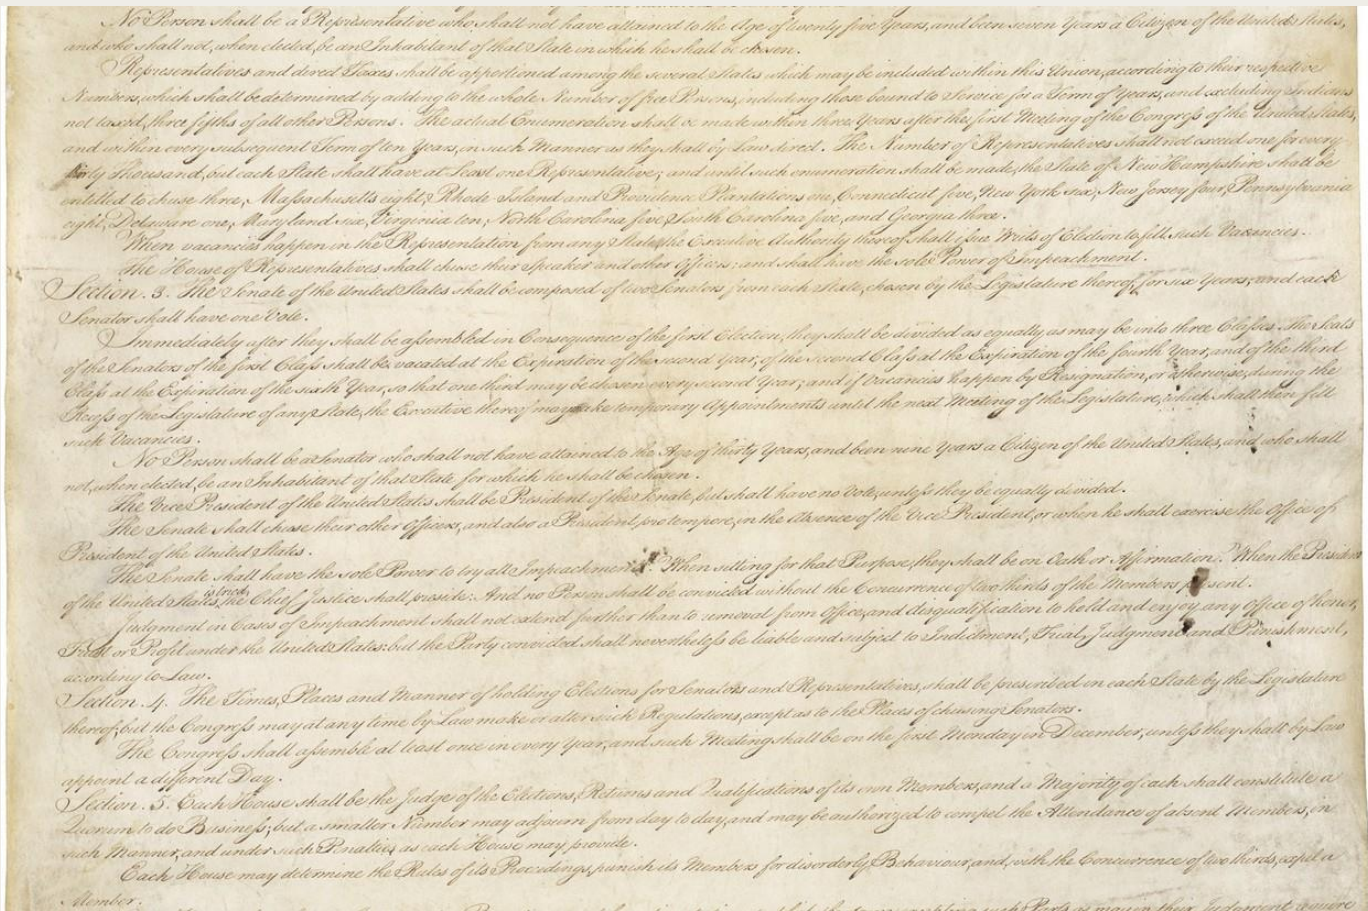 No Person shall be a Representative who shall not have attained to the Age of twenty five Years, and been seven Years a Citizen of the United States,
and who shall not, when elected, be an Inhabitant of that State in which he shall be chosen.
Representatives and direct Taxes shall be apportioned among the several States which may be included within this Union, according to their respective
Numbers, which shall be determined by adding to the whole Number of free Persons, including those bound to Service for a Term of Years, and excluding Indians
not taxed, three fifths of all other Persons. The actual Enumeration shall be made within three Years after the first Meeting of the Congress of the United States,
and within every subsequent Term of ten Years, in such Manner as they shall by Law direct. The Number of Representatives shall not exceed one for every
thirty Thousand, but each State shall have at Least one Representative; and until such enumeration shall be made, the State of New Hampshire shall be
entitled to chuse three, Massachusetts eight, Rhode Island and Providence Plantations one, Connecticut five, New York six, New Jersey four, Pennsylvania
eight, Delaware one, Maryland six, Virginia ten, North Carolina five, South Carolina five, and Georgia three.
When vacancies happen in the Representation from any State, the Executive Authority thereof shall issue Writs of Election to fill such Vacancies.
The House of Representatives shall chuse their Speaker and other Officers; and shall have the sole Power of Impeachment.
Section. 3. The Senate of the United States shall be composed of two Senators from each State, chosen by the Legislature thereof, for six Years; and each
Senator shall have one Vote.
Immediately after they shall be assembled in Consequence of the first Election, they shall be divided as equally as may be into three Classes. The Seats
of the Senators of the first Class shall be vacated at the Expiration of the second Year, of the second Class at the Expiration of the fourth Year, and of the third
Class at the Expiration of the sixth Year, so that one third may be chosen every second Year; and if Vacancies happen by Resignation, or otherwise, during the
Recess of the Legislature of any State, the Executive thereof may make temporary Appointments until the next Meeting of the Legislature, which shall then fill
such Vacancies.
No Person shall be a Senator who shall not have attained to the Age of thirty Years, and been nine Years a Citizen of the United States, and who shall
not, when elected, be an Inhabitant of that State for which he shall be chosen.
The Vice President of the United States shall be President of the Senate, but shall have no Vote, unless they be equally divided.
The Senate shall chuse their other Officers, and also a President pro tempore, in the Absence of the Vice President, or when he shall exercise the Office of
President of the United States.
The Senate shall have the sole Power to try all Impeachments. When sitting for that Purpose, they shall be on Oath or Affirmation. When the President
of the United States is tried, the Chief Justice shall preside: And no Person shall be convicted without the Concurrence of two thirds of the Members present.
Judgment in Cases of Impeachment shall not extend further than to removal from Office, and disqualification to hold and enjoy any Office of honor,
Trust or Profit under the United States: but the Party convicted shall nevertheless be liable and subject to Indictment, Trial, Judgment and Punishment,
according to Law.
Section. 4. The Times, Places and Manner of holding Elections for Senators and Representatives, shall be prescribed in each State by the Legislature
thereof; but the Congress may at any time by Law make or alter such Regulations, except as to the Places of chusing Senators.
The Congress shall assemble at least once in every Year, and such Meeting shall be on the first Monday in December, unless they shall by Law
appoint a different Day.
Section. 5. Each House shall be the Judge of the Elections, Returns and Qualifications of its own Members, and a Majority of each shall constitute a
Quorum to do Business; but a smaller Number may adjourn from day to day, and may be authorized to compel the Attendance of absent Members, in
such Manner, and under such Penalties as each House may provide.
Each House may determine the Rules of its Proceedings, punish its Members for disorderly Behaviour, and, with the Concurrence of two thirds, expel a
Member.
such Parts as may in their Judgment require